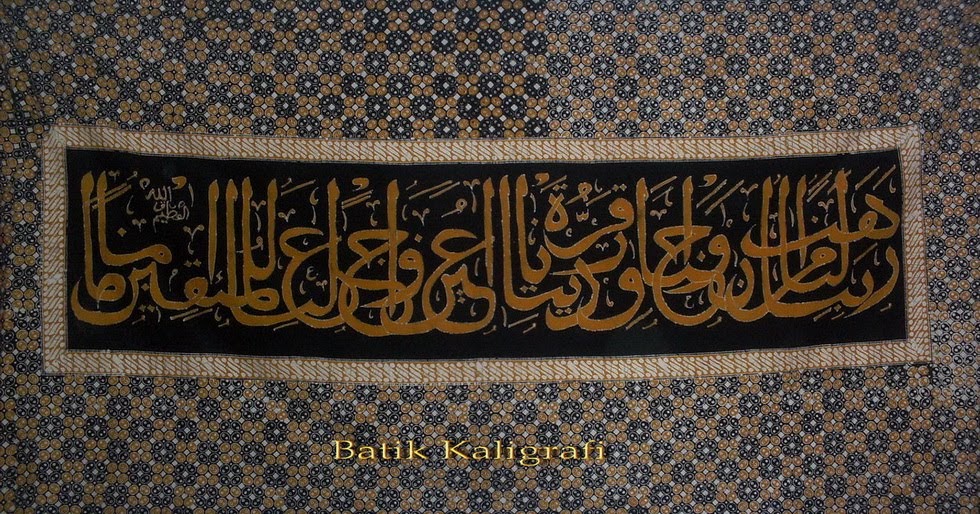 ربنا هب لنا من أزواجنا وذرياتنا قرة أعين واجعلنا للمتقين إماما
الله العظيم
Batik Kaligrafi